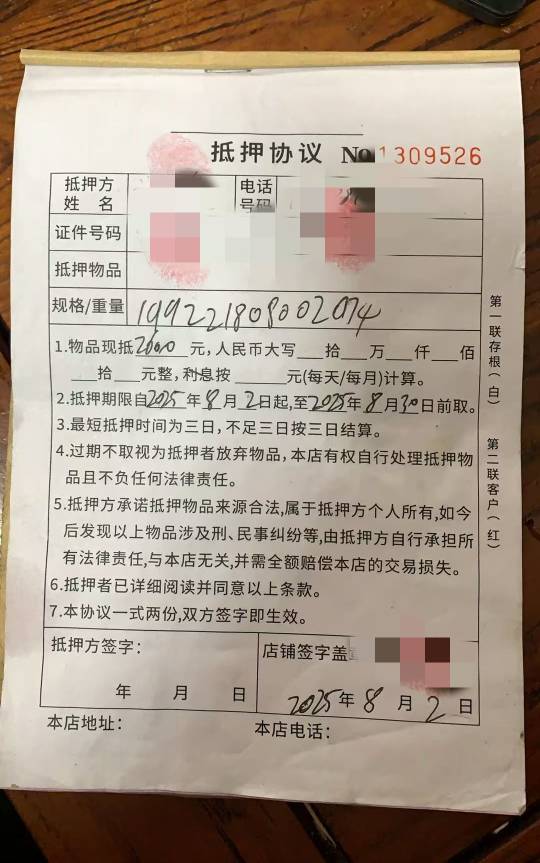 抵押协议 No 1309526
抵押方
姓 名
电话
号码
证件号码
抵押物品
规格/重量 199221808002074
1.物品现抵2000元，人民币大写___拾___万___仟___佰
___拾___元整，利息按______元(每天/每月)计算。
2.抵押期限自2025年8月2日起，至2025年8月30日前取。
3.最短抵押时间为三日，不足三日按三日结算。
4.过期不取视为抵押者放弃物品，本店有权自行处理抵押物
品且不负任何法律责任。
5.抵押方承诺抵押物品来源合法，属于抵押方个人所有，如今
后发现以上物品涉及刑、民事纠纷等，由抵押方自行承担所
有法律责任，与本店无关，并需全额赔偿本店的交易损失。
6.抵押者已详细阅读并同意以上条款。
7.本协议一式两份，双方签字即生效。
抵押方签字：
年 月 日
店铺签字盖
2025年8月2日
本店地址：
本店电话：
第一联存根（白）
第二联客户（红）